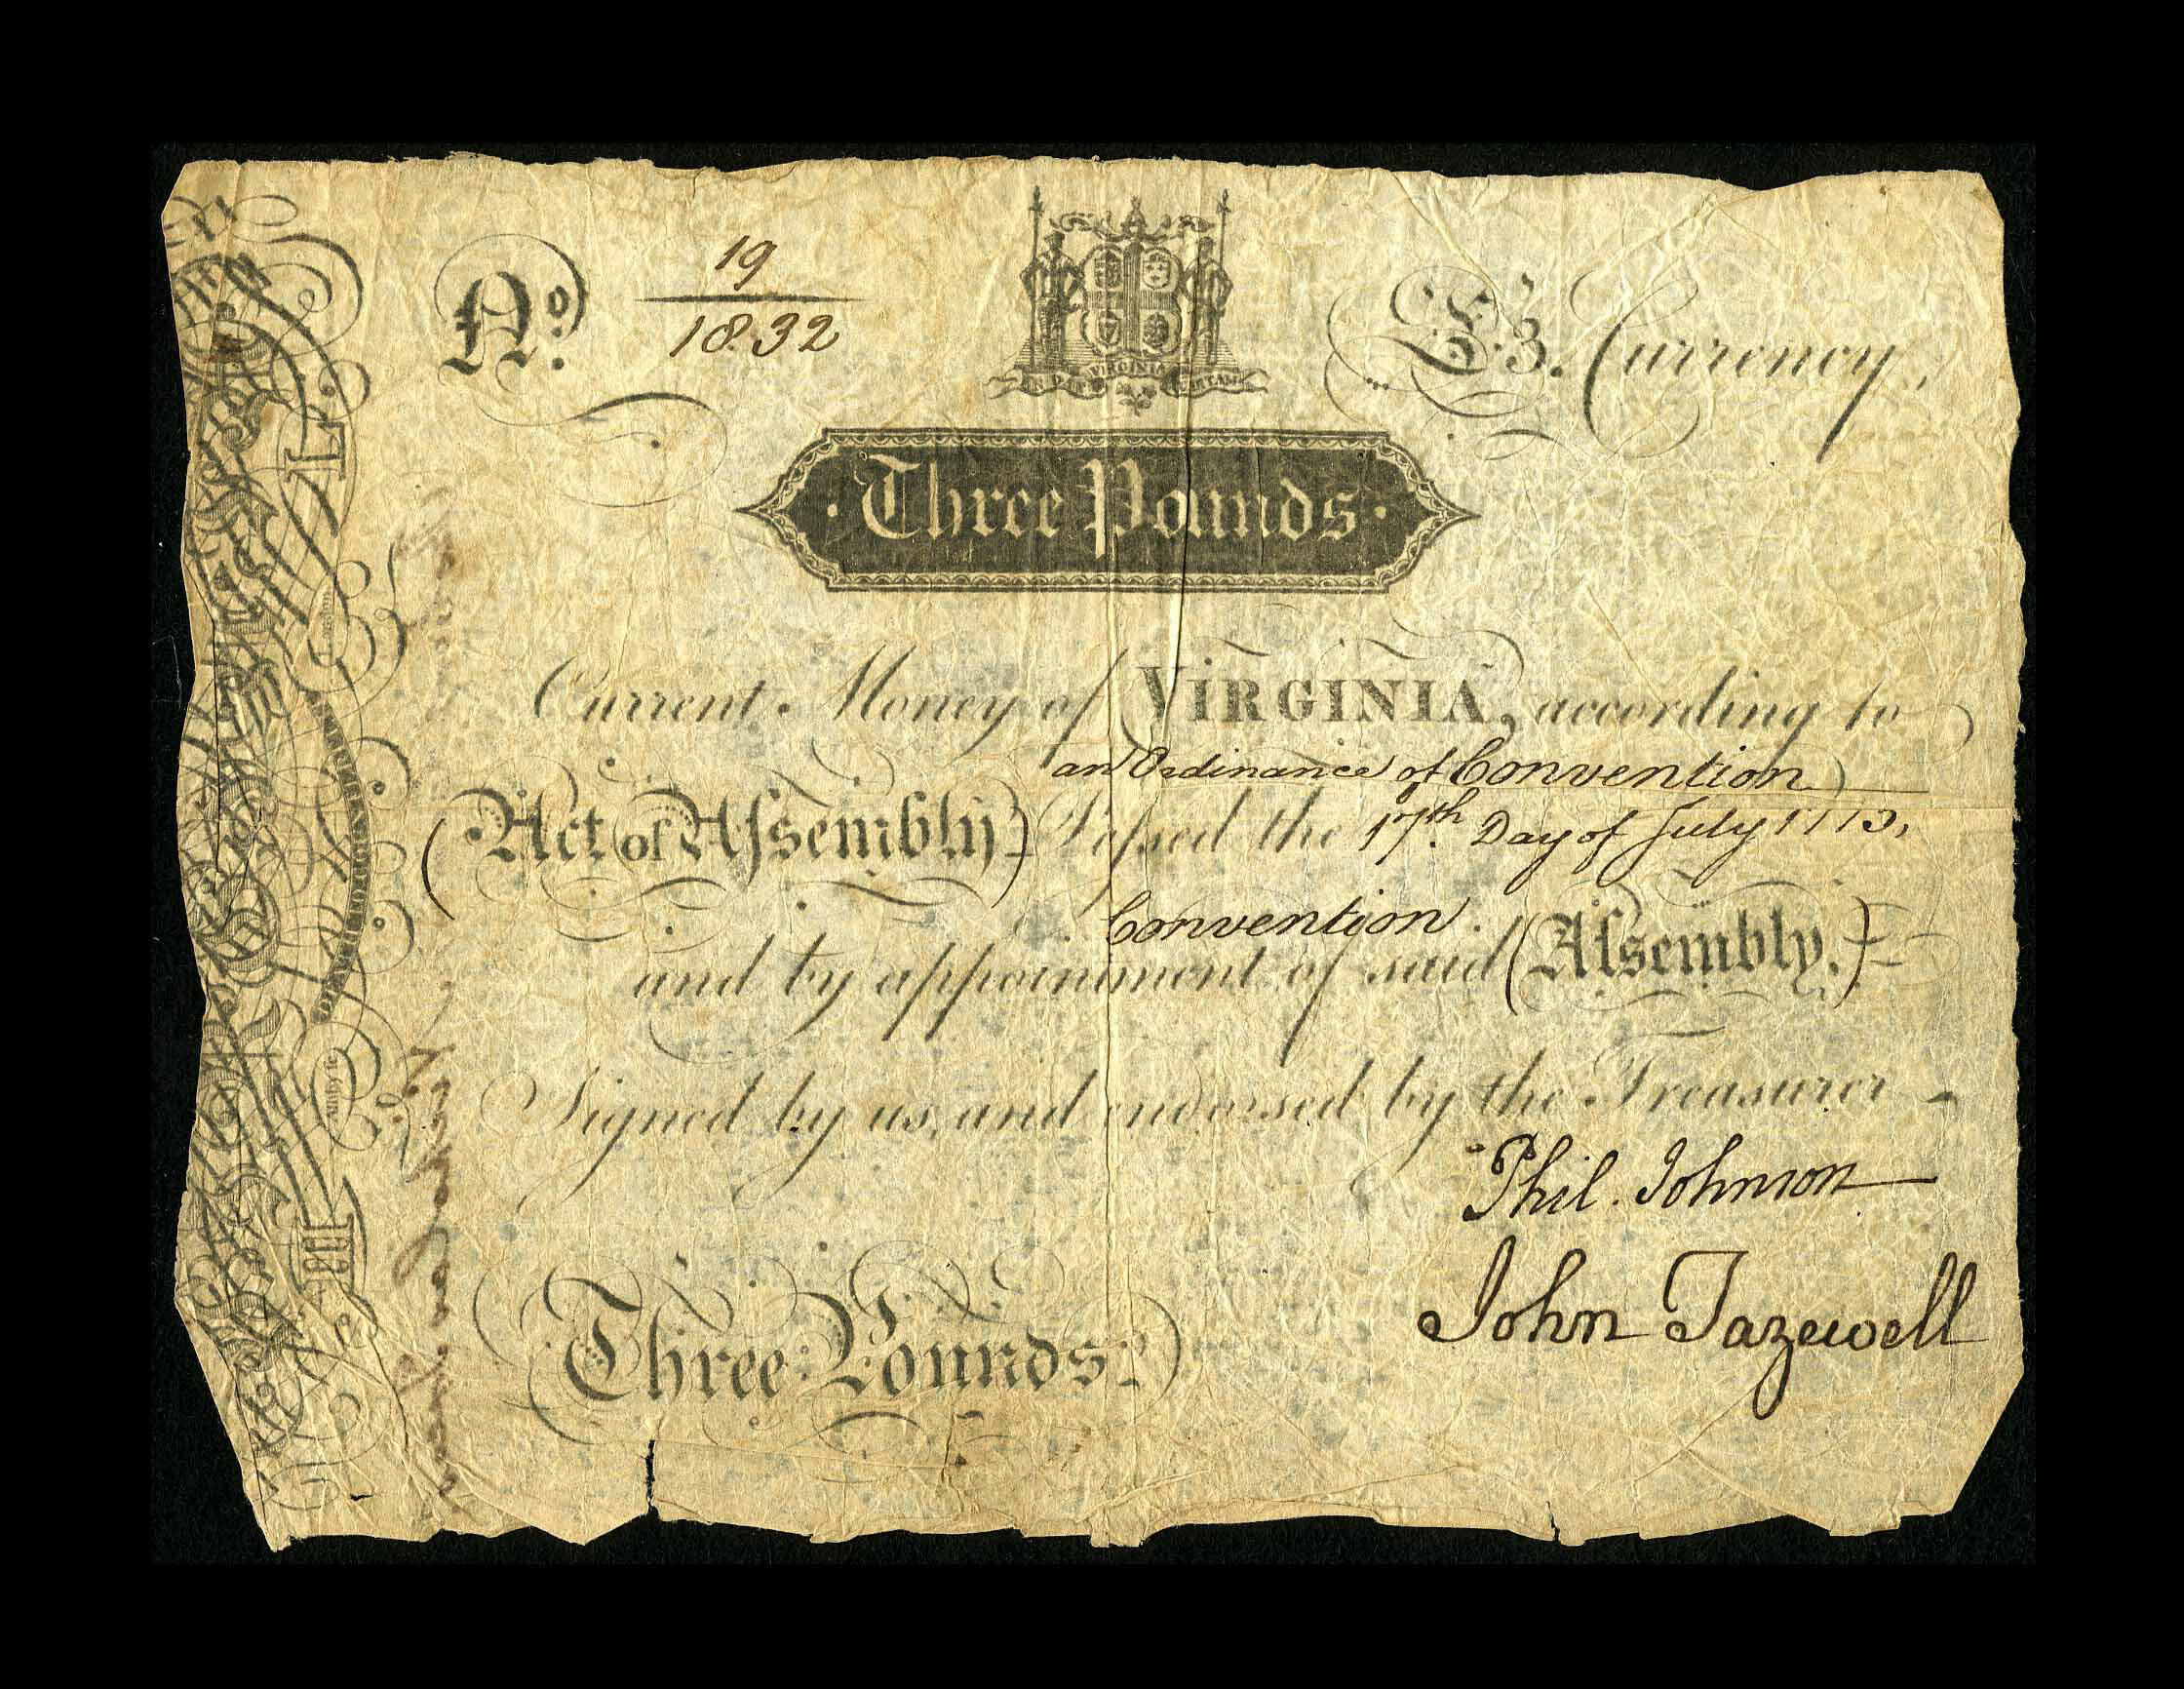 No.
19
1832
VIRGINIA
£3. Currency,
Three Pounds
Current Money of VIRGINIA, according to
an Ordinance of Convention
(Act of Aſsembly) Paſsed the 17th. Day of July 1775,
Convention
and by appointment of said (Aſsembly.)
Signed by us, and endorsed by the Treasurer
Phil. Johnson
John Tazewell
Three Pounds
DEATH TO COUNTERFEIT
Ashby fc.
London